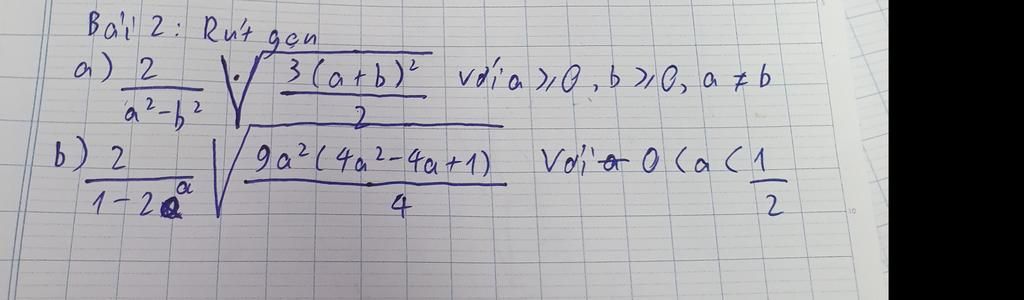 Bài 2: Rút gọn
a) \frac{2}{a²-b²} \sqrt{\frac{3(a+b)²}{2}} với a ≥ 0, b ≥ 0, a ≠ b
b) \frac{2}{1-2a} \sqrt{\frac{9a²(4a²-4a+1)}{4}} Với 0 < a < \frac{1}{2}